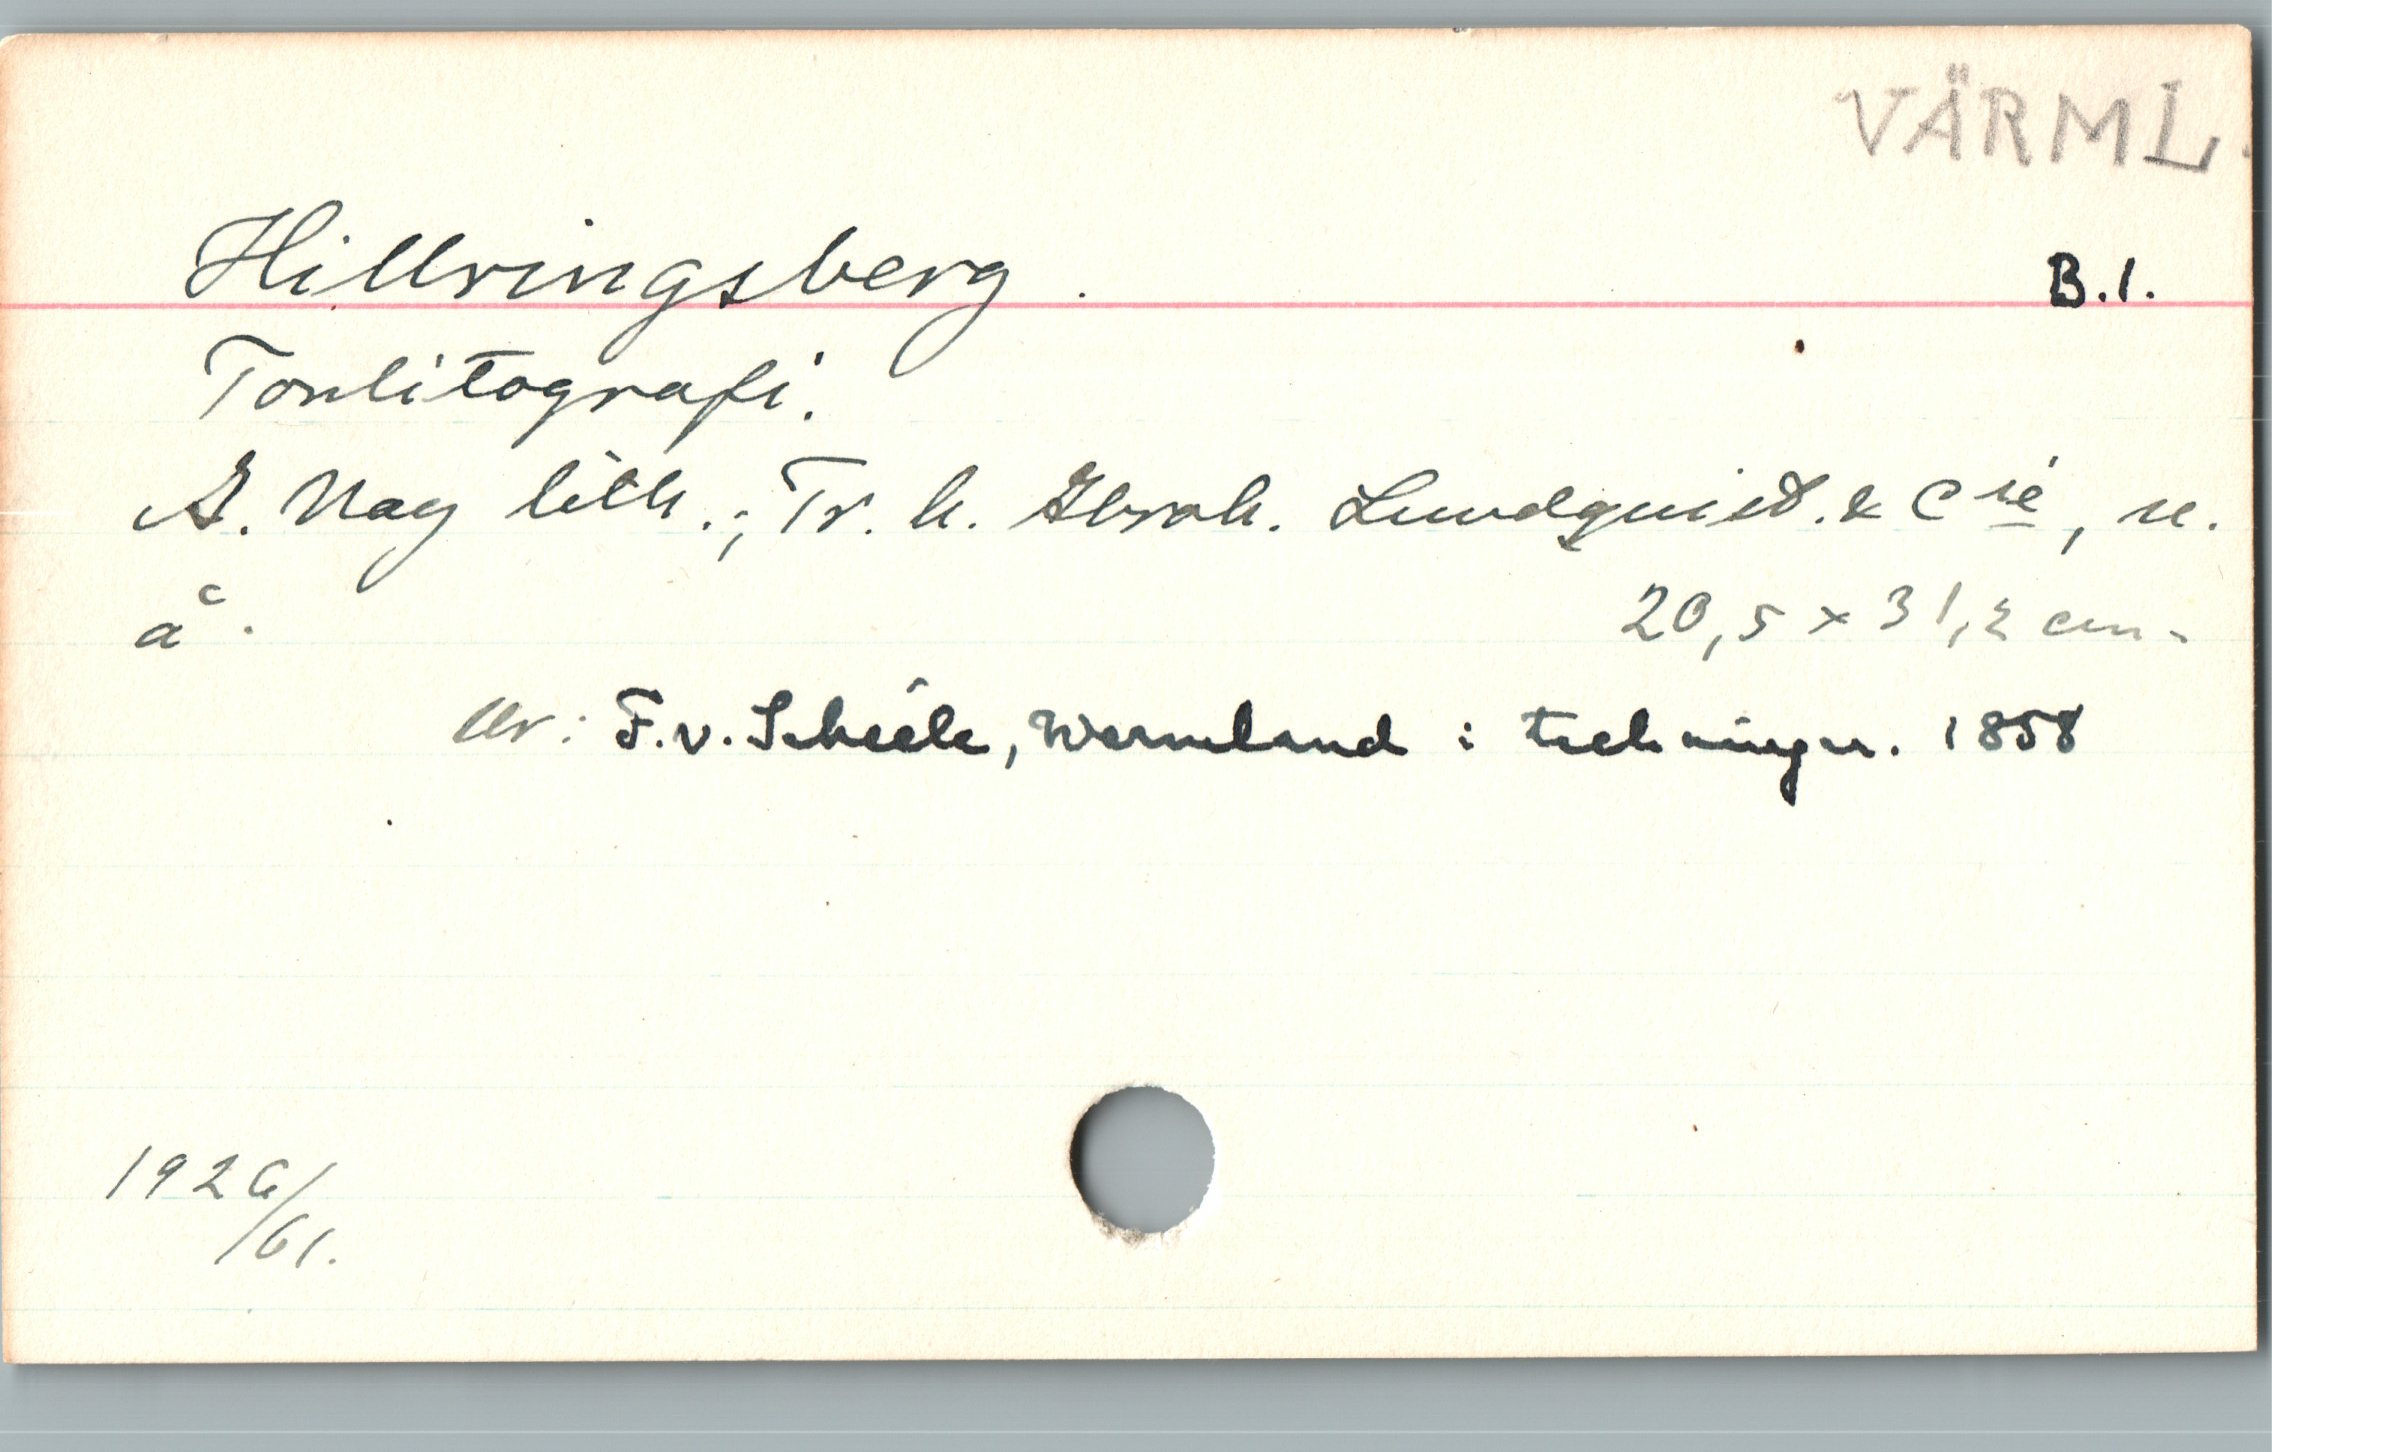 VÄRML.
Hillringsberg. B.1.
Tonlitografi.
A. Nay lith.; Tr. h. Abrah. Lundquist. & Cié, u.
å. 20,5 x 31,2 cm.
Ur: F.v. Schéele, Wermland i teckningar. 1858
1926/
/61.